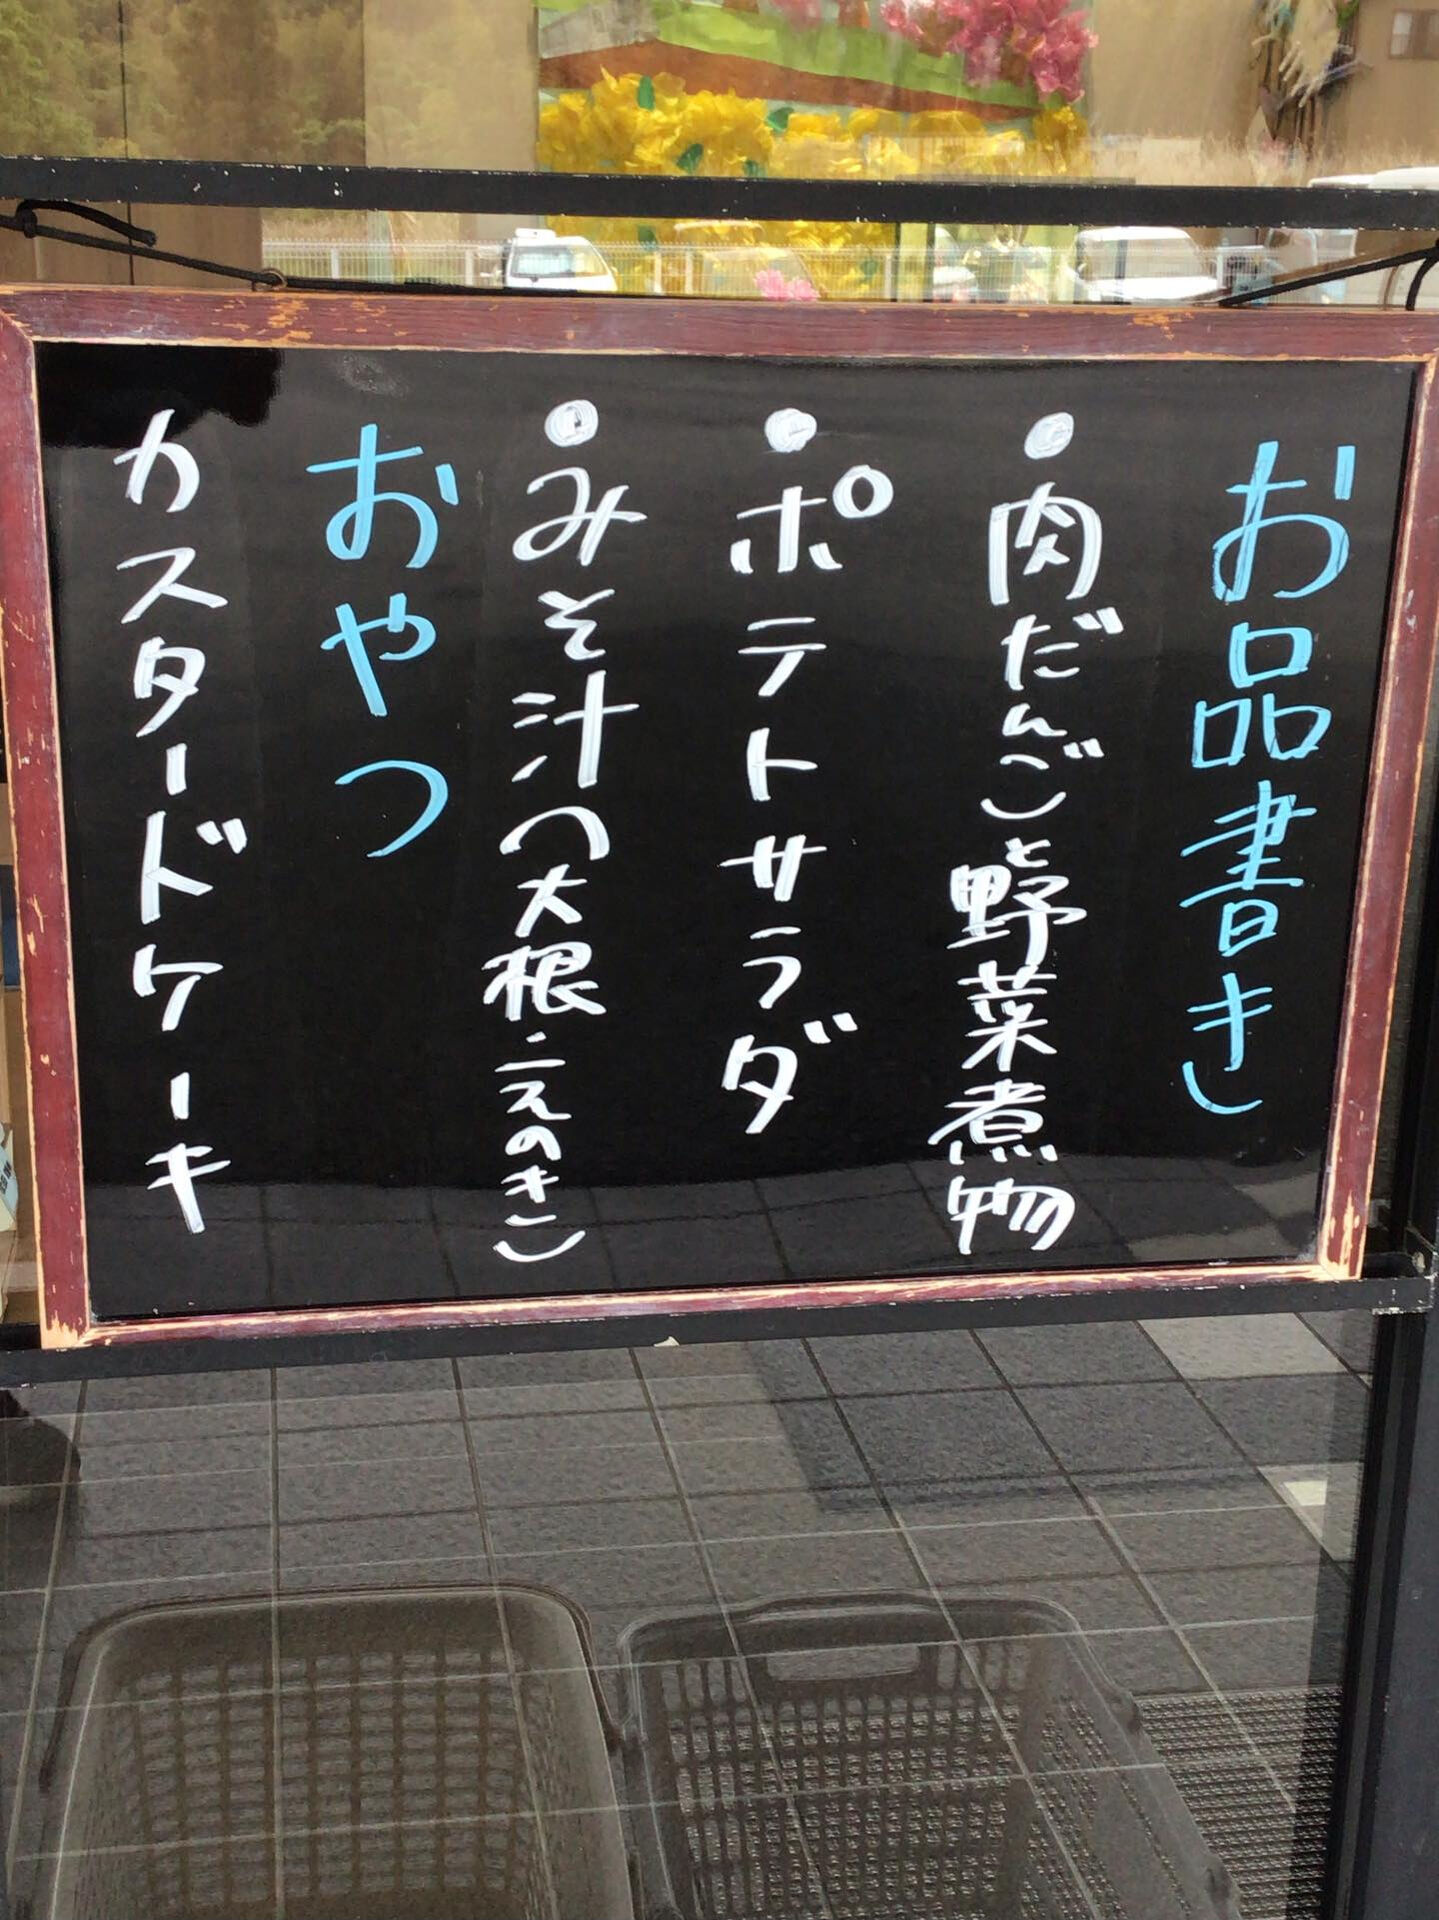 お品書き
●肉だんごと野菜煮物
●ポテトサラダ
●みそ汁(大根・えのき)
おやつ
カスタードケーキ